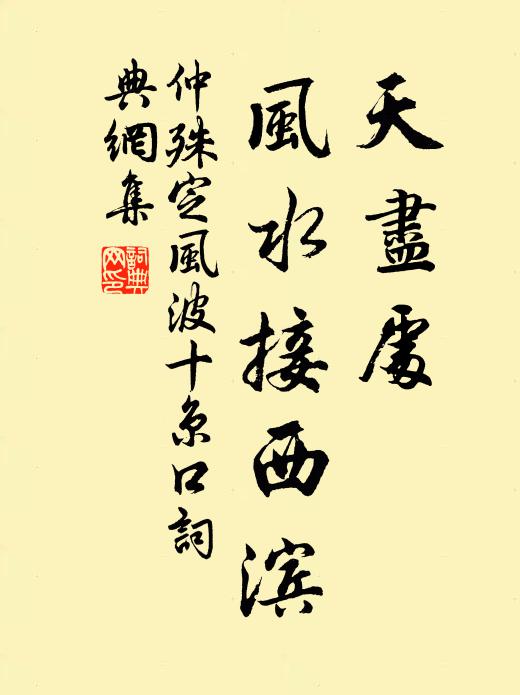 天盡處
風水接西滨
仲殊定風波十京口詞
典網集
詞典網印